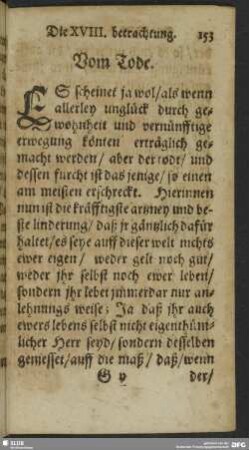 Die XVIII. betrachtung. 153
Vom Tode.
ES scheinet ja wol/als wenn
allerley unglück durch ge-
wohnheit und vernünfftige
erwegung könten erträglich ge-
macht werden/ aber der todt/ und
dessen furcht ist das jenige/ so einen
am meisten erschreckt. Hierinnen
nun ist die kräfftigste artzney und be-
ste linderung/ daß jr gäntzlich dafür
haltet/es seye auff dieser welt nichts
ewer eigen/ weder gelt noch gut/
weder jhr selbst noch ewer leben/
sondern jhr lebet jmmerdar nur an-
lehnungs weise; Ja daß jhr auch
ewers lebens selbst nicht eigenthüm-
licher Herr seyd/ sondern desselben
geniesset/auff die maß/ daß/wenn
G v der/
SLUB